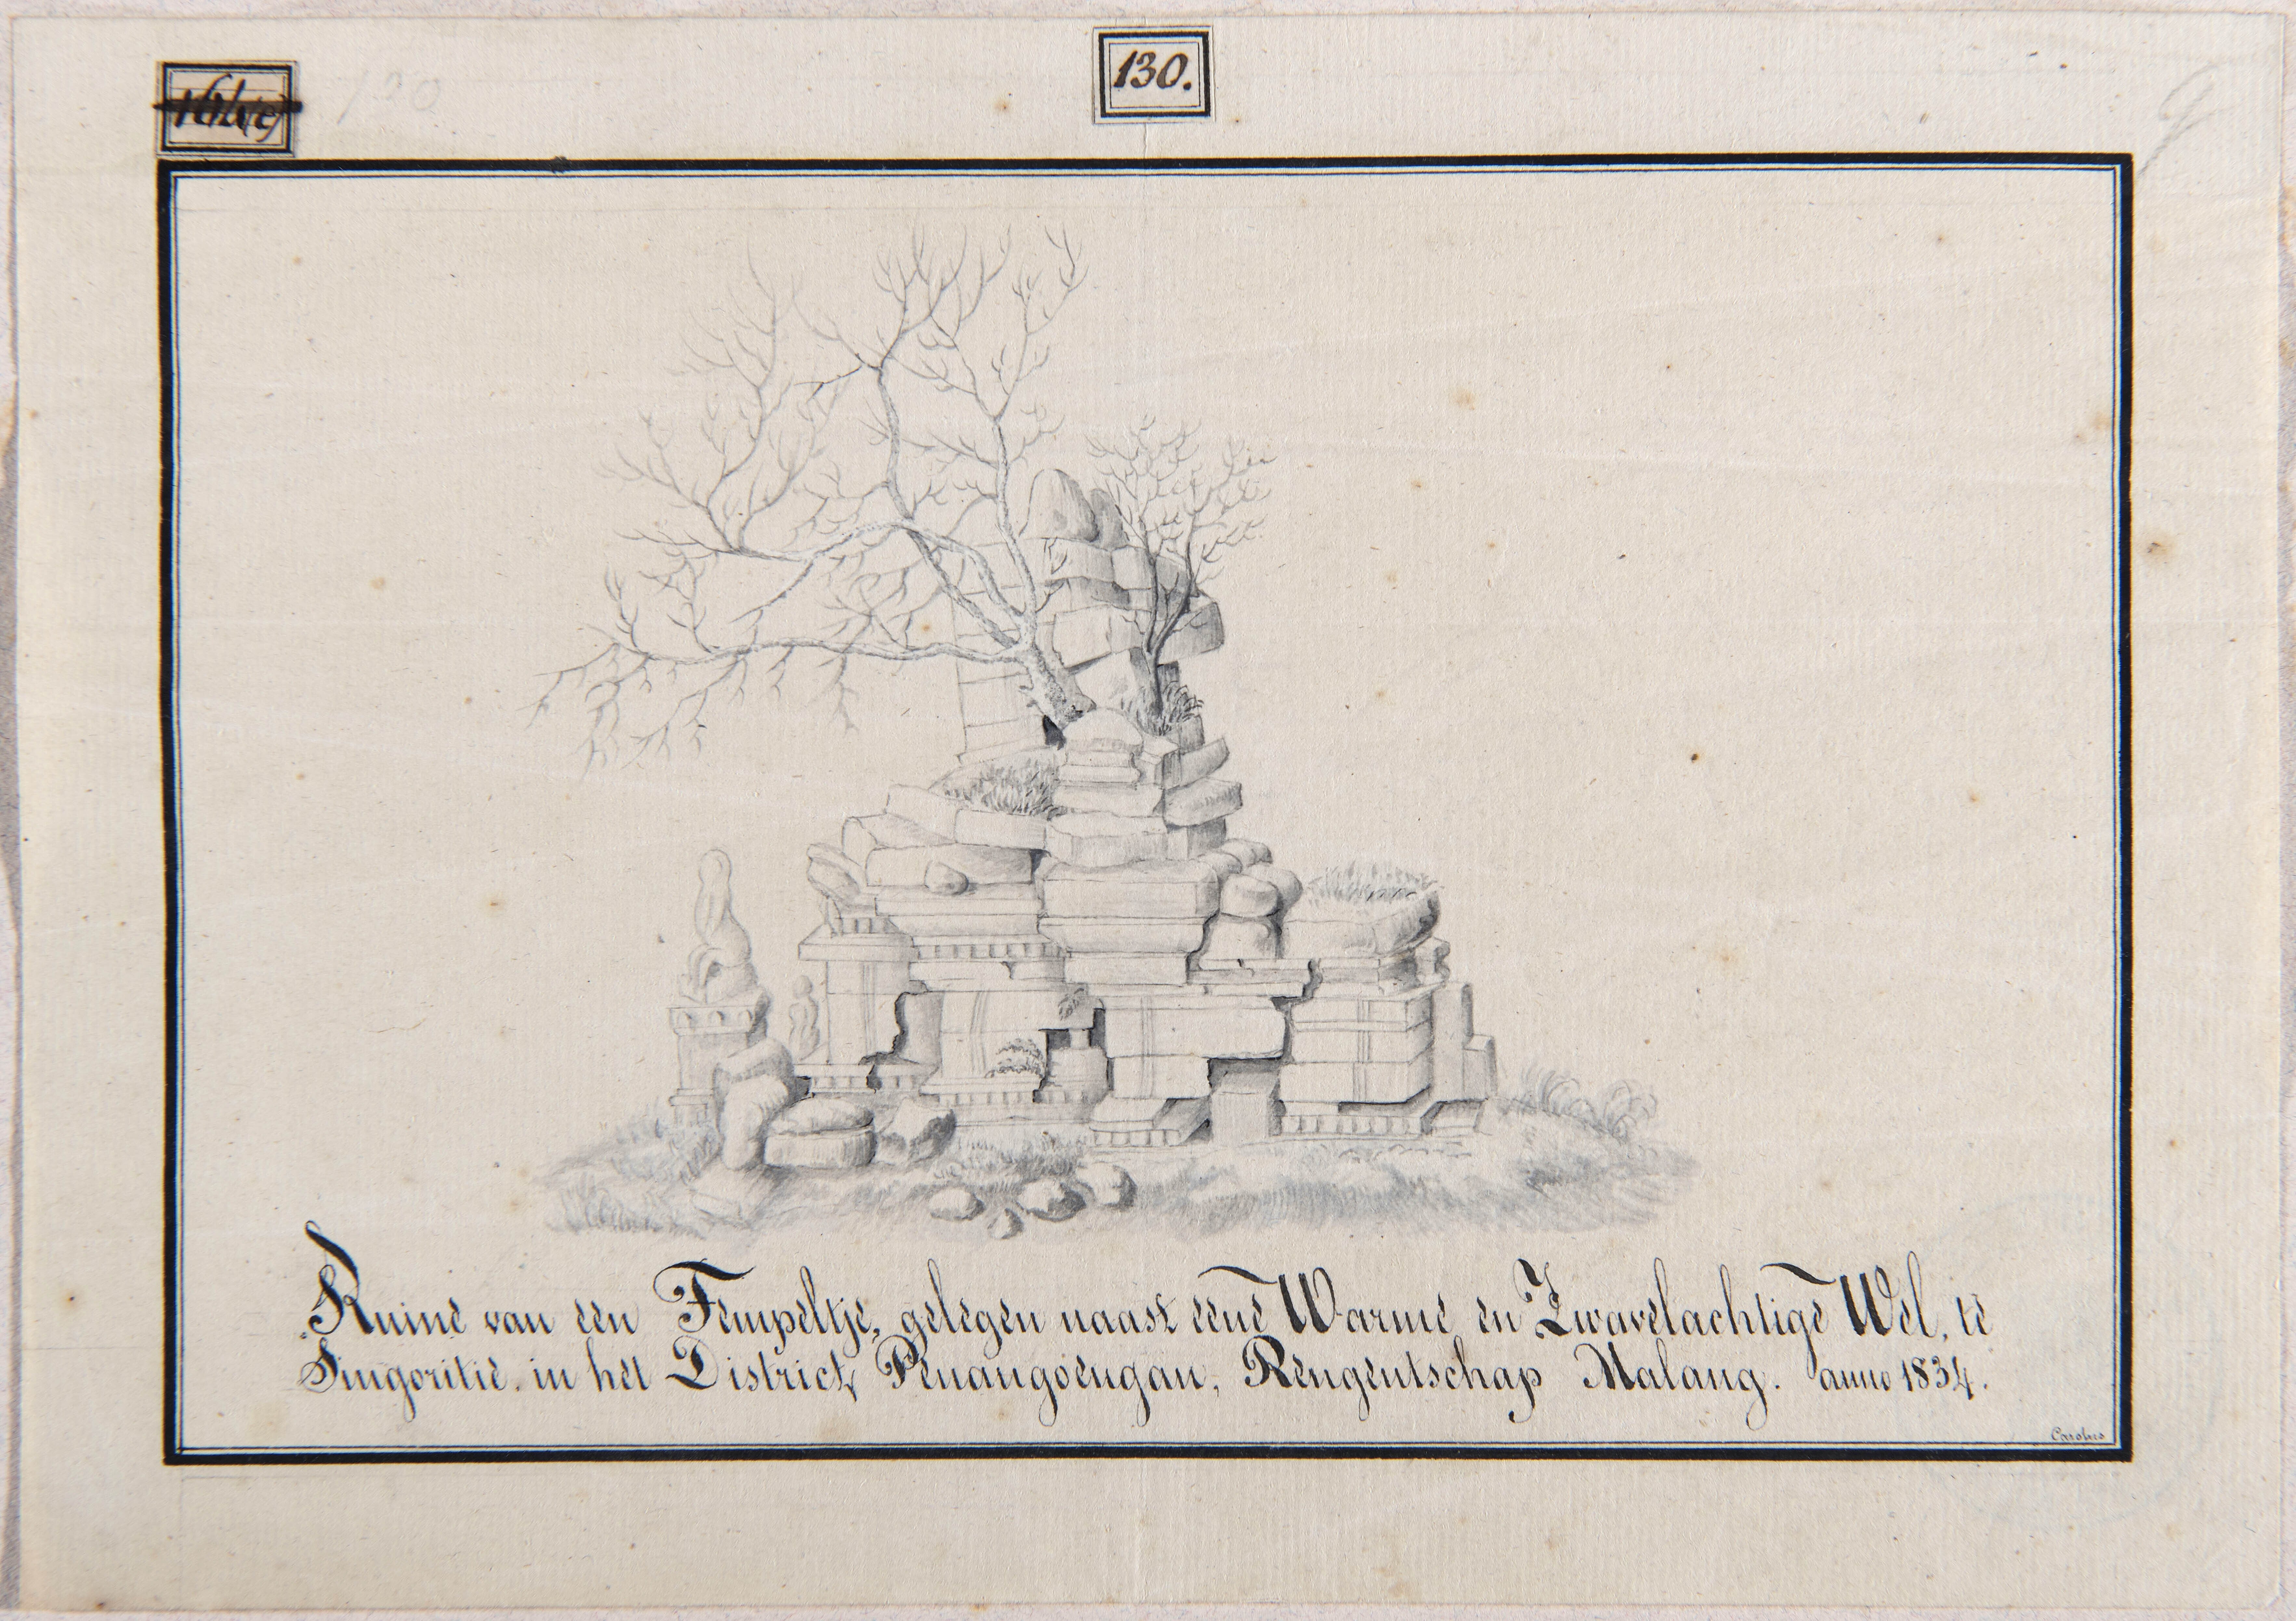 130.
130
Ruine van een Tempeltje, gelegen naast eene Warme en Zwavelachtige Wel, te
Singoritie. in het District, Penangoengan, Rengentschap Malang. anno 1834.
Carolus